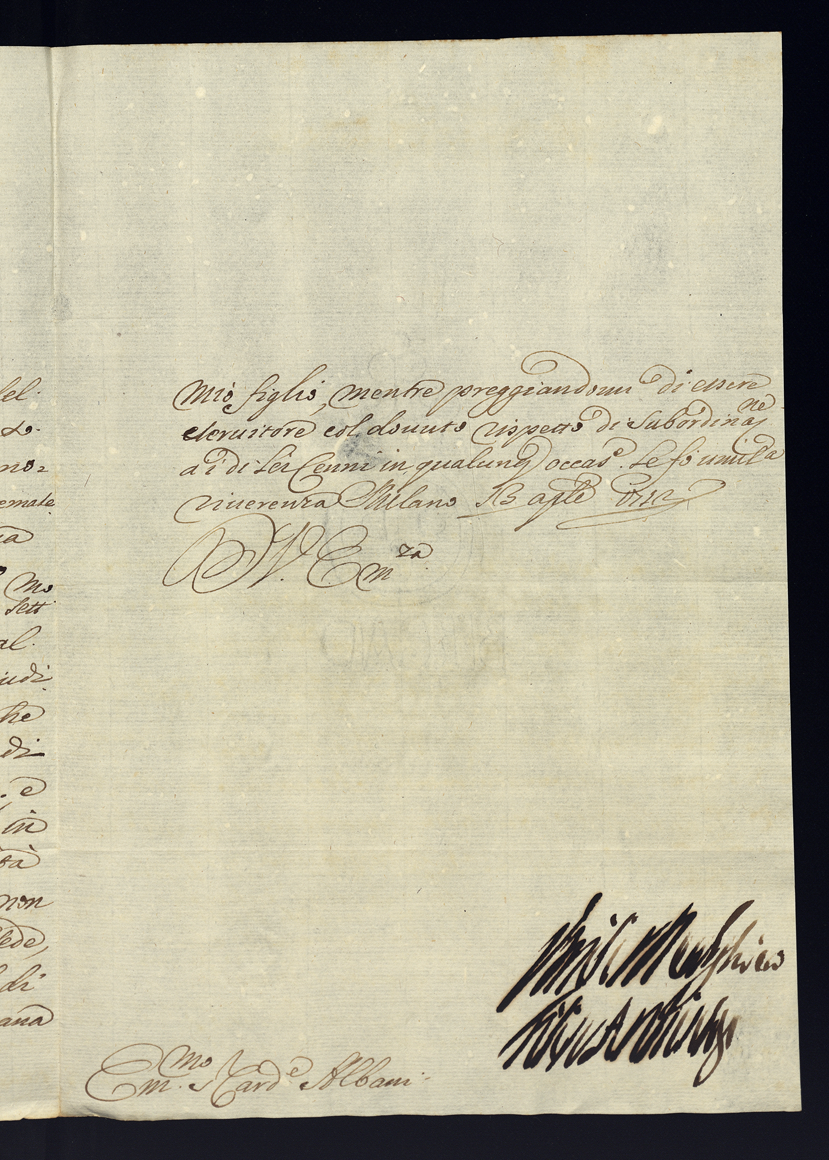 lel.
no=
emate
ra
mo
Sett
al.
iudi
he
di
, e
in
tà
non
ede,
di
ana
mio figlio, mentre preggiandomi di essere
esercitore col douuto rispetto di Subordinaz.ne
a i di Lei Cenni in qualunq occas.e Le fò umil.a
riuerenza Milano 13 ap.le 1712
D. V. Em.za
Em.mo S. Card.e Albani.